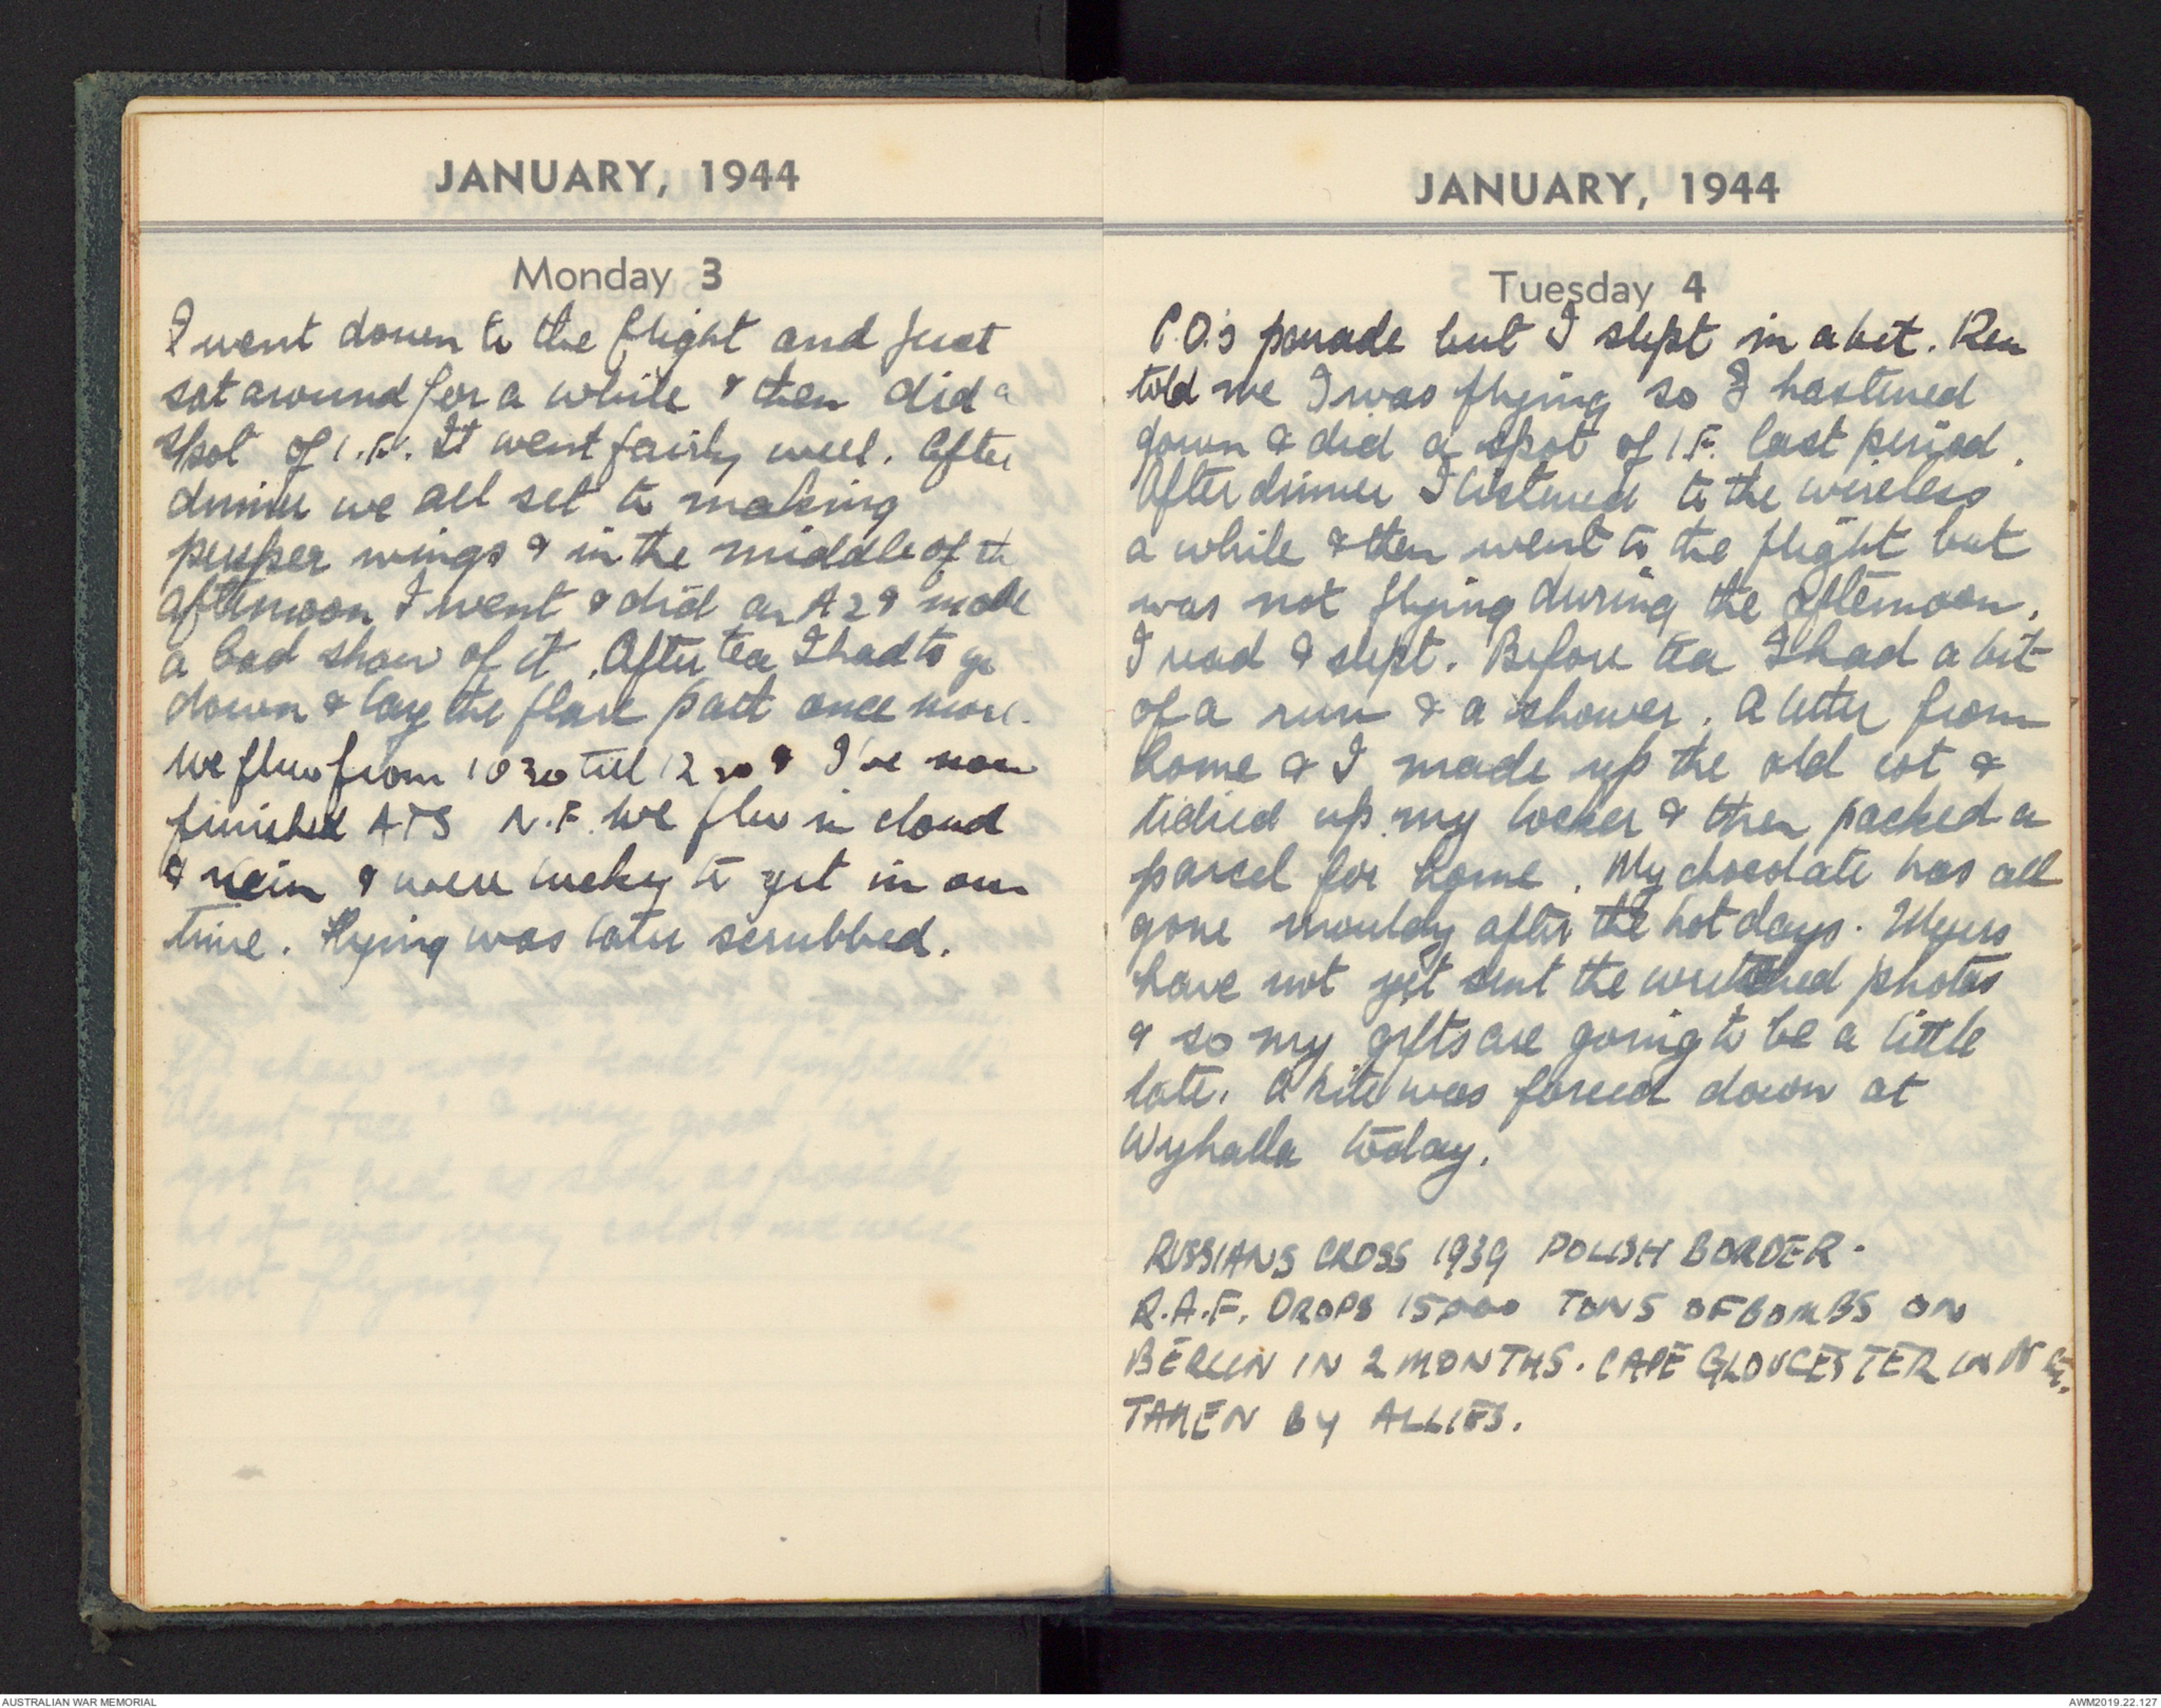 JANUARY, 1944
Monday 3
I went down to the flight and just
sat around for a while & then did a
spot of I.F. It went fairly well. After
dinner we all set to making
perspex wings & in the middle of the
afternoon I went & did an A29 made
a bad show of it. After tea I had to go
down & lay the flare path once more.
We flew from 1030 till 1230 & I've now
finished ATS N.F. We flew in cloud
& rain & were lucky to get in our
time. Flying was later scrubbed.
JANUARY, 1944
Tuesday 4
C.O.'s parade but I slept in a bit.
told me I was flying so I hastened
down & did a spot of I.F. last period.
After dinner I listened to the wireless
a while & then went to the flight but
was not flying during the afternoon.
I read & slept. Before tea I had a bit
of a run & a shower. A letter from
home & I made up the old cot &
tidied up my locker & then packed a
parcel for home. My chocolate has all
gone mouldy after the hot days. Myers
have not yet sent the wretched photos
& so my gifts are going to be a little
late. A kite was forced down at
Wyhalla today.
RUSSIANS CROSS 1939 POLISH BORDER.
R.A.F. DROPS 15,000 TONS OF BOMBS ON
BERLIN IN 2 MONTHS. CAPE GLOUCESTER IN N G.
TAKEN BY ALLIES.
AUSTRALIAN WAR MEMORIAL
AWM2019.22.127